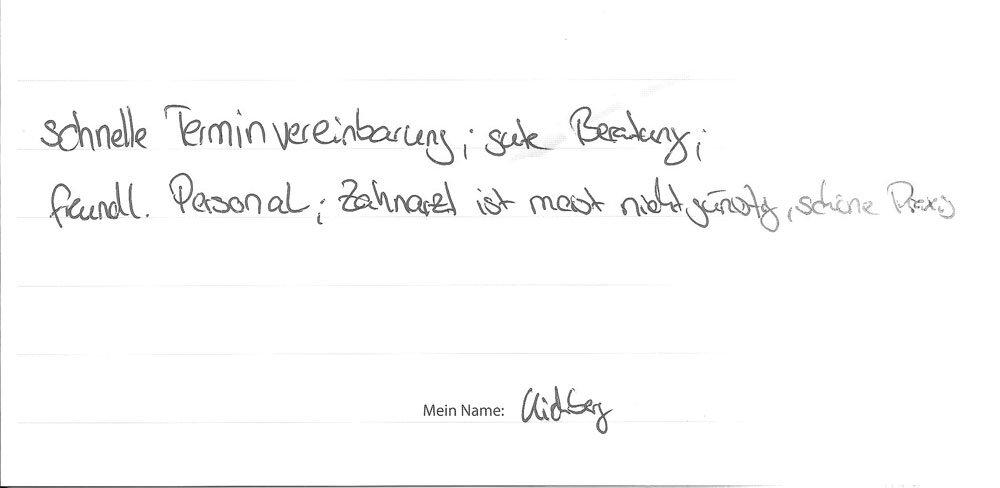 schnelle Terminvereinbarung; gute Beratung;
freundl. Personal; Zahnarzt ist meist nicht günstig, schöne Praxis
Mein Name: